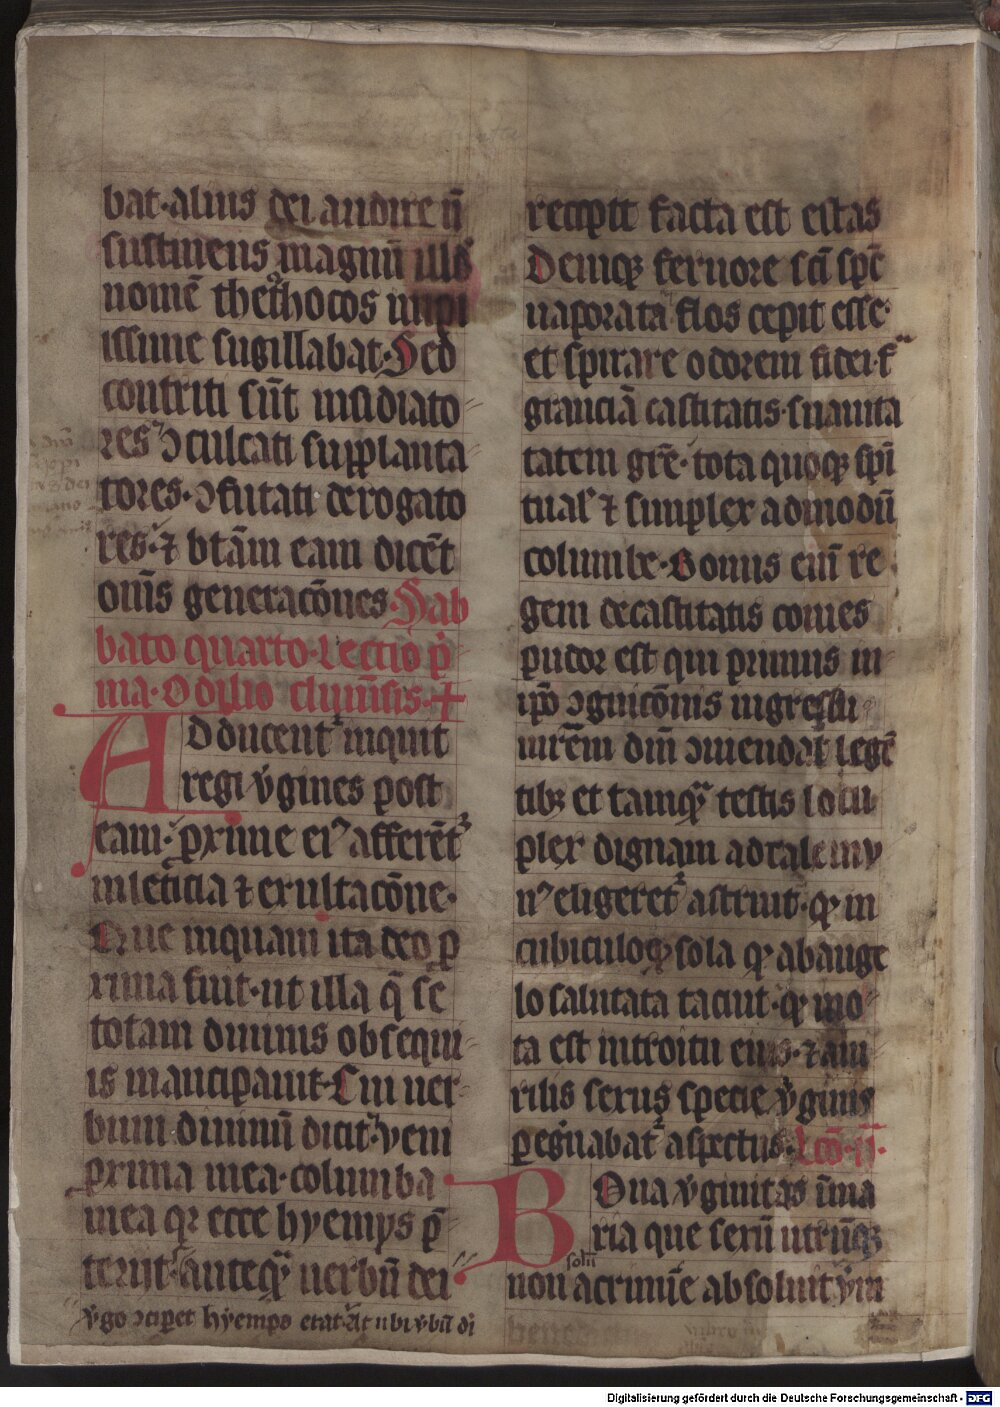 bat·alius dei audire nō
sustinens magnū illđ
nomē thethocos impi
issime sugillabat·Sed
contriti sūt insidiato
res ↄculcati supplanta
tores·ↄfutati derogato
res·⁊ btām eam dicēt
om̄s generacōnes·Sab
bato quarto·Lectio p̄
ma·Odilio clunīsis·
Adducentᷣ inquit
regi v̓gines post
eam·ꝓxime ei⁹ afferētᷣ
in leticia ⁊ exultacōne·
Que inquam ita deo ꝓ
xima fuit·ut illa q̄ se
totam diuinis obsequi
is mancipauit·Cui uer
bum diuinū dicitᷣ·veni
proxima mea·columba
mea qꝛ ecce hyemps p̄
teriit·anteqᷓ uerbū dei
v̓go ↄciperet hyemps erat·At ubi v̓bū di
recepit facta est estas
Deniqꝫ feruore sc̄i spc̄
uaporata flos cepit esse·
et spirare odorem fidei·f
granciā castitatis·suauita
tatem grē·tota quoqꝫ spi
tual' ⁊ simplex admodū
columbe·Bonus enī re
gem decastitatis comes
pudor est qui primus in
ip̄o ↄgnicōnis ingressu
mr̄em dn̄i ↄmendat legē
tibꝫ et tamqᷓ testis locu
plex dignam ad tale my
n⁹ eligeretᷣ astruit·qꝫ in
cubiculo sola qꝫ ab ange
lo salutata tacuit·qꝫ mo
ta est introitu eius·⁊ a ui
rilis sexus specie v̓ginis
pegⁱnabatᷣ aspectus·Lcō·ij·
Bona v̓ginitas ī ma
ria que sexū utrūqꝫ
solū
non a crimīe absoluit v̓m
Digitalisierung gefördert durch die Deutsche Forschungsgemeinschaft - DFG